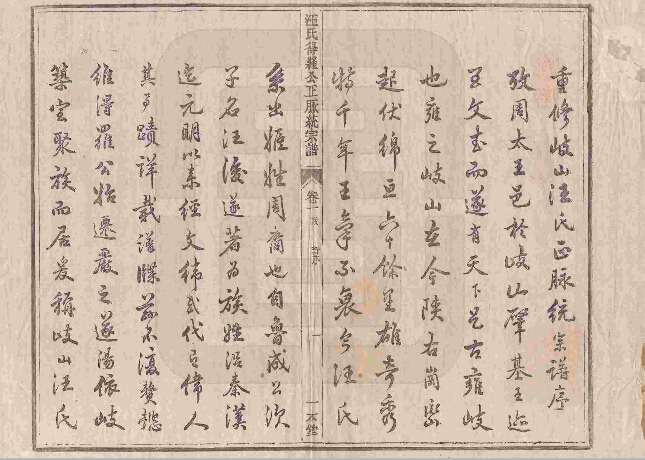 重修岐山汪氏正脉統宗譜序
攷周太王邑於岐山肇基王迹
至文武而遂有天下是古雍岐
也雍之岐山在今陝右崗巒
起伏綿亘六十餘里雄奇秀
特千年王氣不衰今汪氏
汪氏得羅公正脈統宗譜
卷一 序 一
系出姬姓周裔也自魯成公次
子名汪後遂著為族姓沿秦漢
迄元明以來經文緯武代有偉人
其事蹟詳載譜牒茲不復贅聽
維得羅公始遷嚴之遂陽依岐
築室聚族而居爰稱岐山汪氏